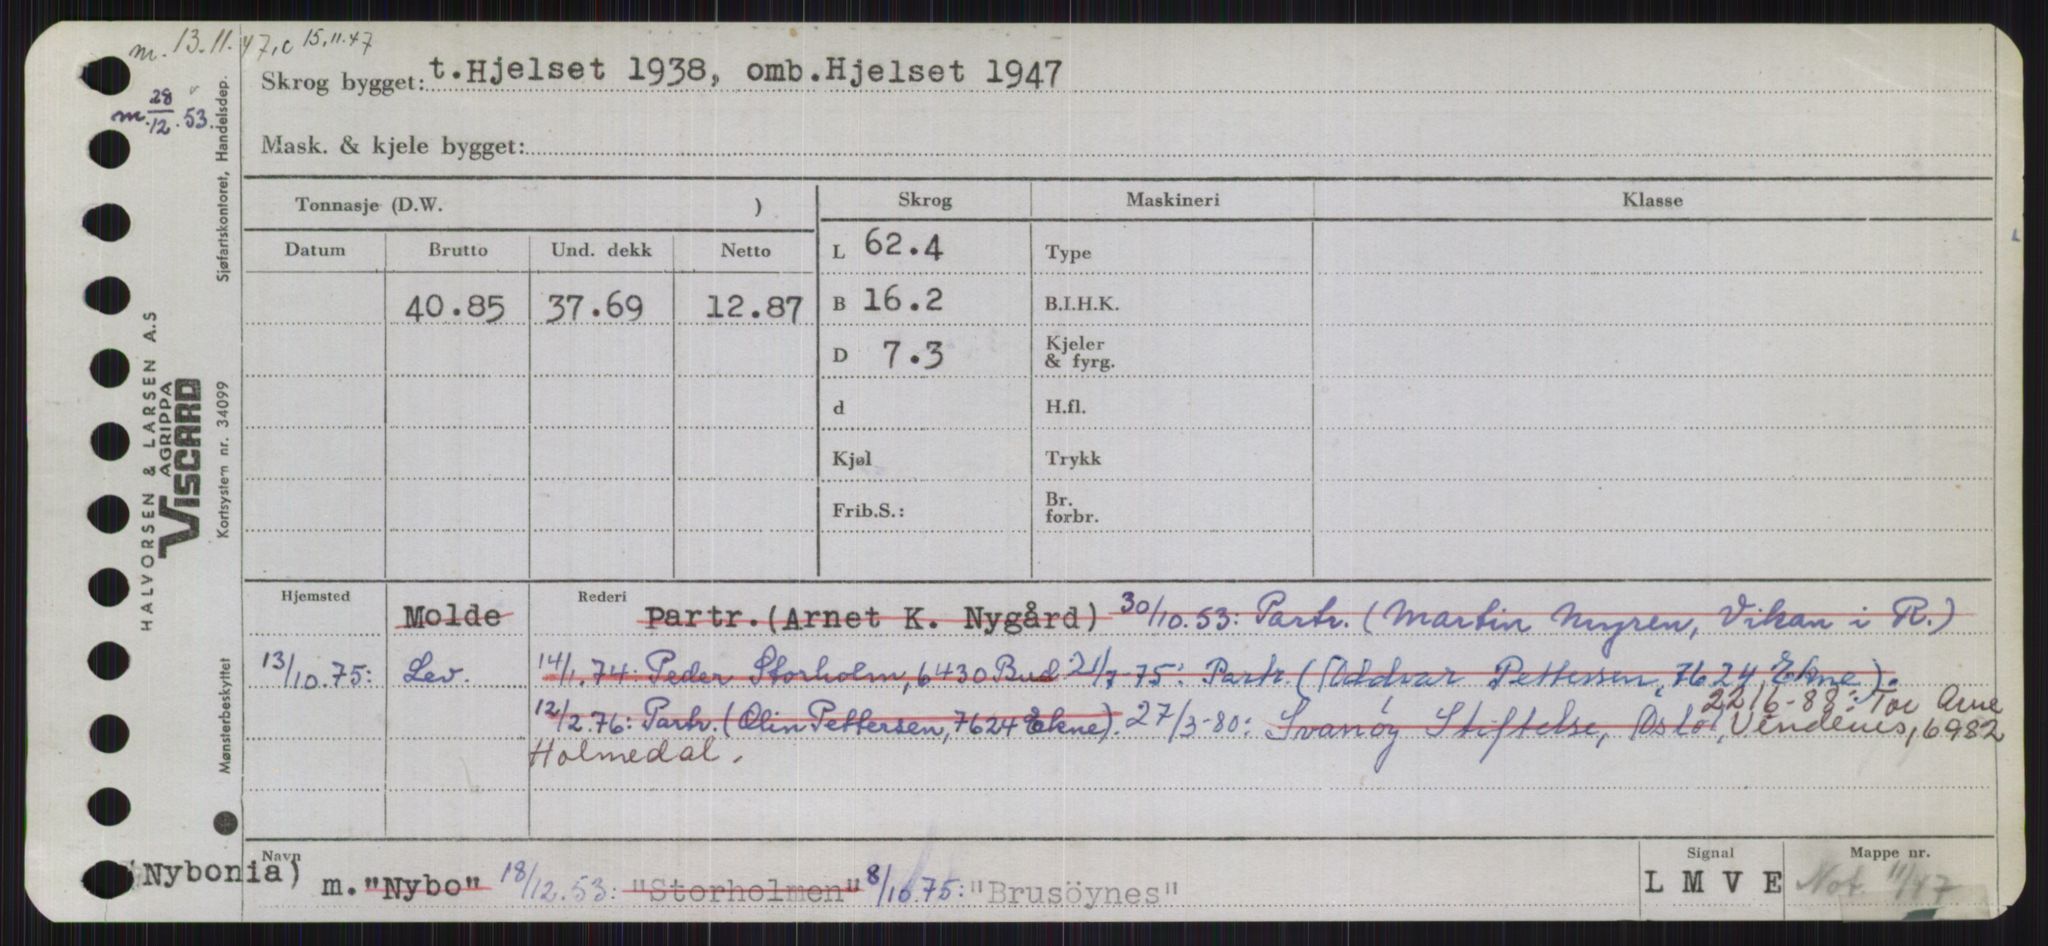 m. 13.11.47, c 15.11.47
m. 28/12.53.
Skrog bygget: t.Hjelset 1938, omb.Hjelset 1947
Mask. & kjele bygget:
Tonnasje (D.W. )
Skrog Maskineri Klasse
Datum Brutto Und. dekk Netto
L 62.4 Type
40.85 37.69 12.87
B 16.2 B.I.H.K.
D 7.3 Kjeler & fyrg.
d H.fl.
Kjøl Trykk
Frib.S.: Br. forbr.
Hjemsted Rederi
Molde Partr.(Arnet K. Nygård) 30/10.53: Partr. (Martin Myren, Vikan i R.)
13/10.75: Lev. 14/1.74: Peder Storholm, 6430 Bud 21/7-75: Partr. (Oddvar Pettersen, 7624 Ekne).
12/2.76: Partr. (Olin Pettersen, 7624 Ekne). 27/3-80: Svanøy Stiftelse, Oslo, 22/6-88: Tor Arne Vendenes, 6982
Holmedal.
Navn Signal Mappe nr.
(Nybonia) m."Nybo" 18/12.53: "Storholmen" 8/10.75: "Brusöynes" L M V E Not. 11/47
HALVORSEN & LARSEN A.S
AGRIPPA
VISCARD
Mønsterbeskyttet Kortsystem nr. 34099 Sjøfartskontoret, Handelsdep.